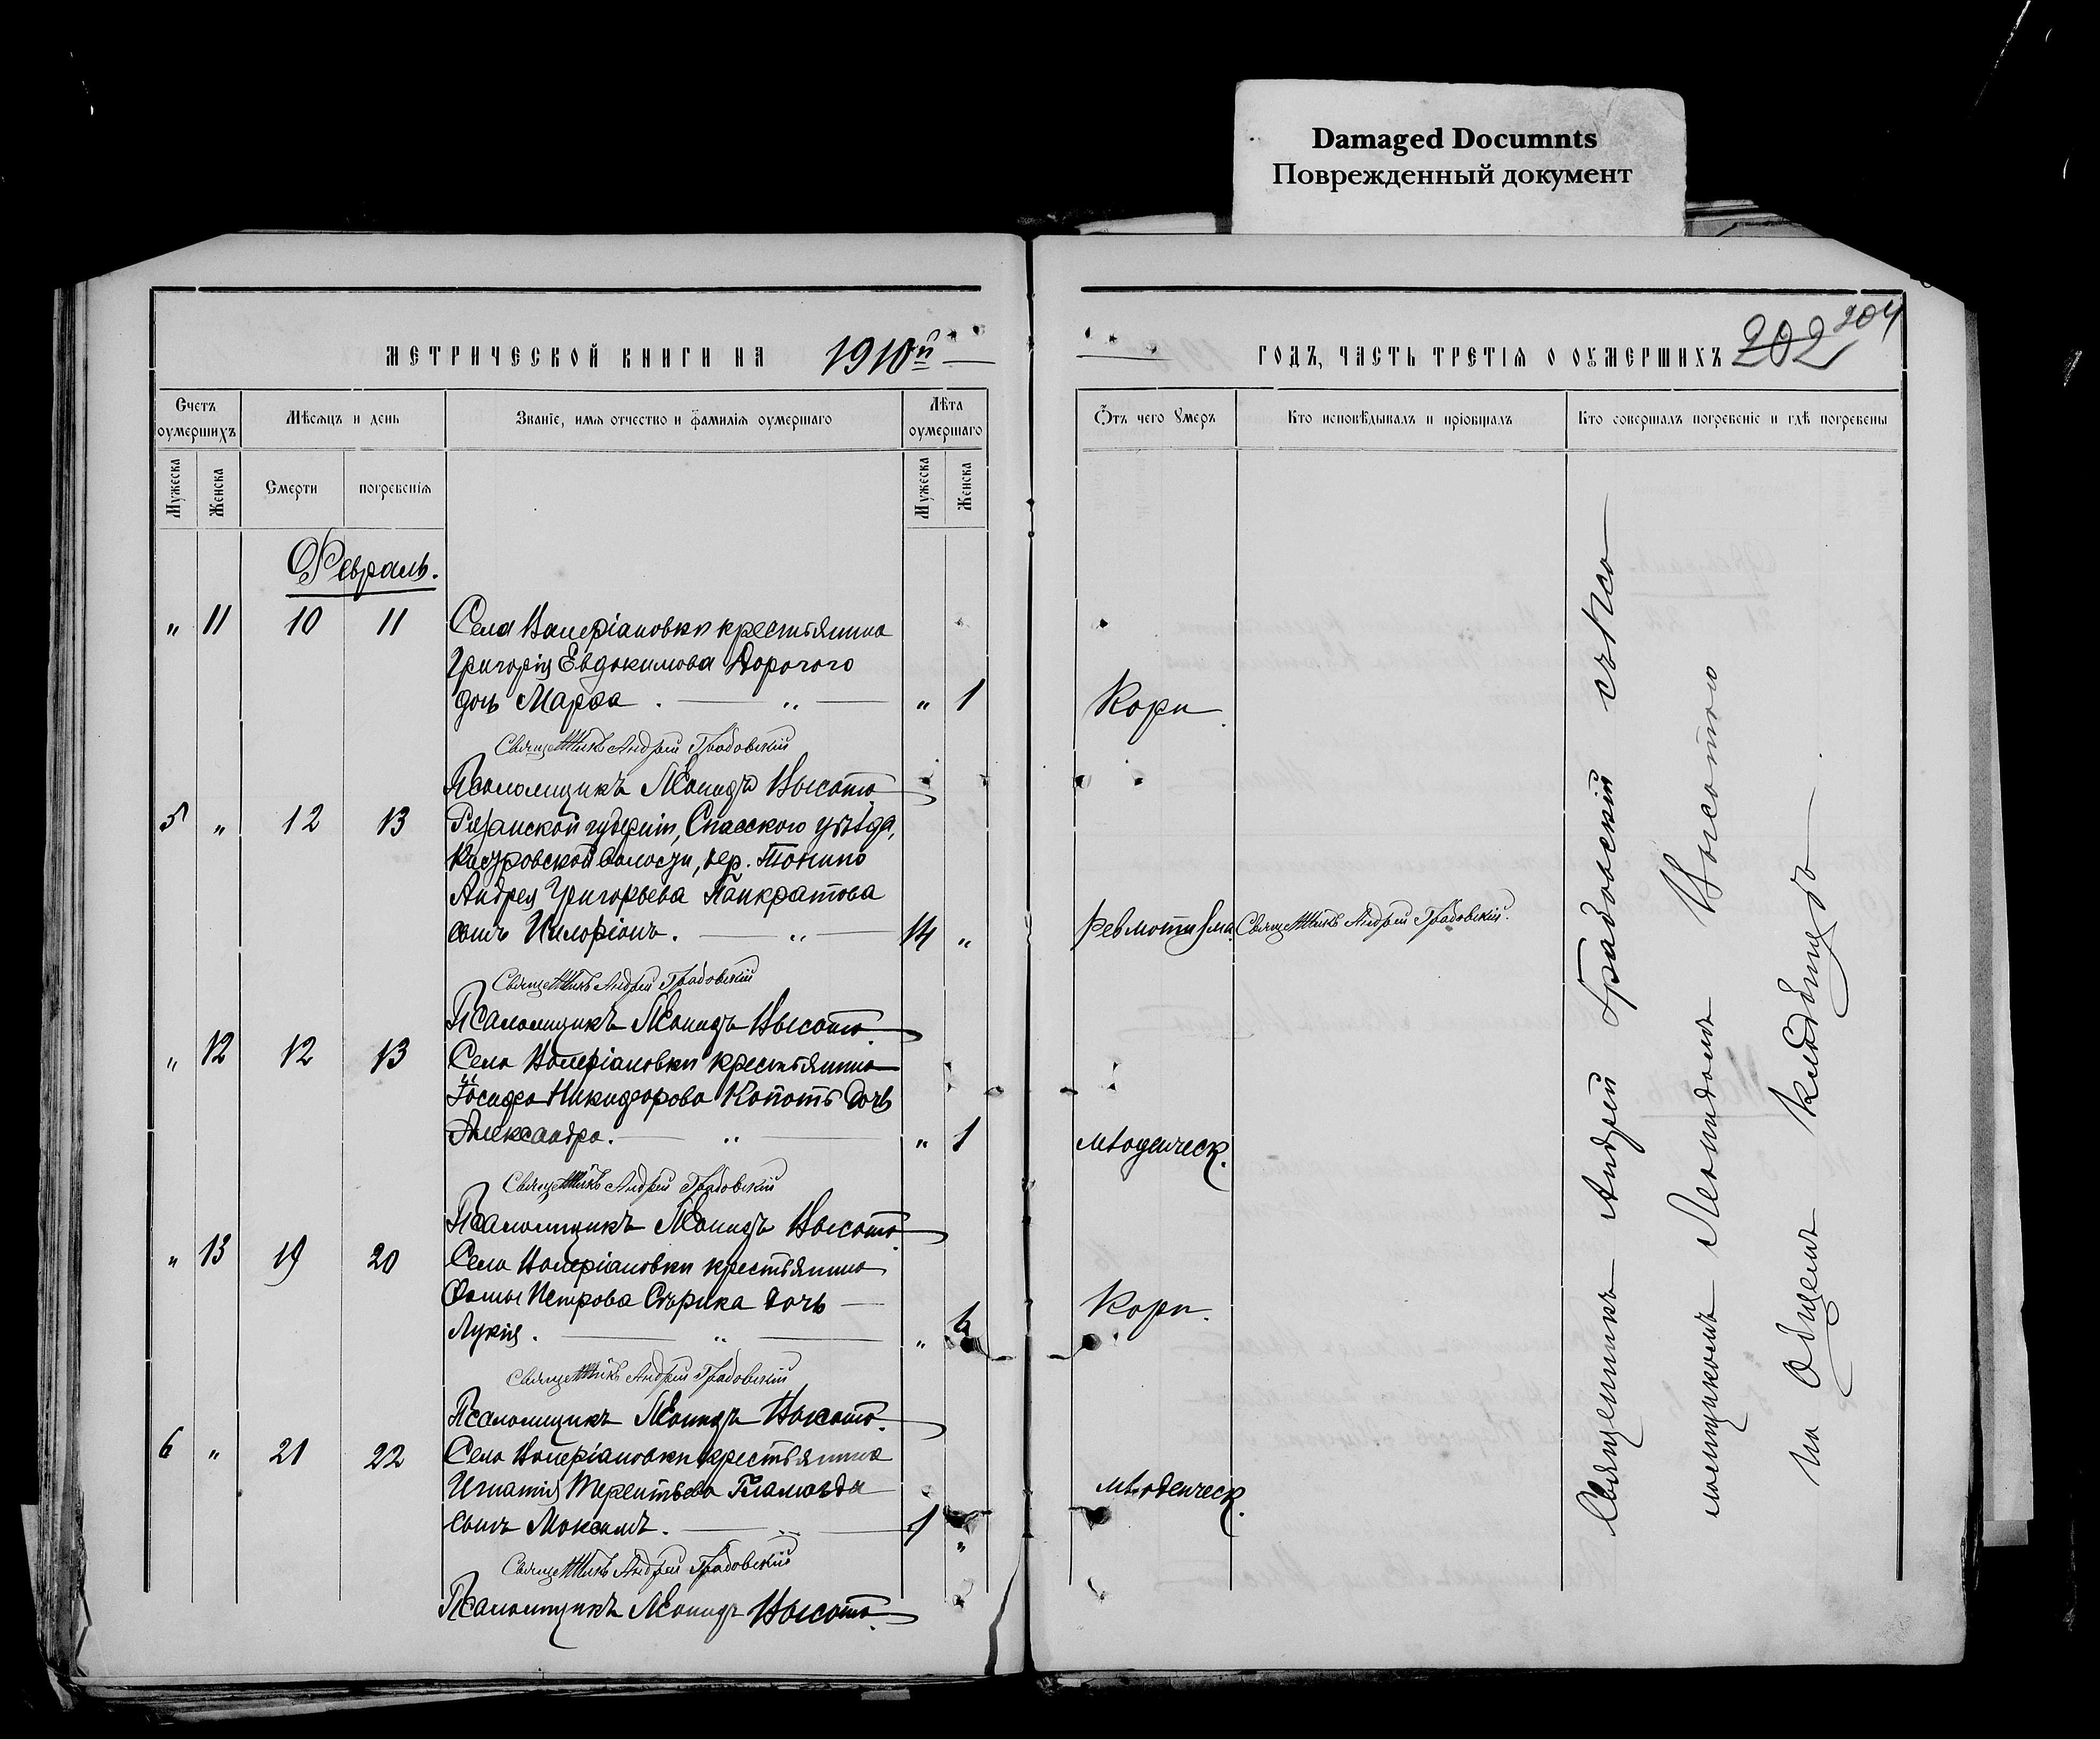 Damaged Documnts
Поврежденный документ
МЕТРИЧЕСКОЙ КНИГИ НА 1910й
Счетъ оумершихъ
Мѣсяцъ и день
Званіе, имя отчество и фамилія оумершаго
Лѣта оумершаго
Мужеска
Женска
Смерти
погребенія
Мужеска
Женска
Февраль.
" 11 10 11 Села Валеріановки крестьянина
Григорія Евдокимова Дорогого
дочь Марфа . — " — " 1
Священникъ Андрей Градовскій
Псаломщикъ Леонидъ Высота
5 " 12 13 Рязанской губерніи, Спасскаго уѣзда,
волости, дер. Тонино
Андрея Григорьева Панкратова
сынъ Иларіонъ. — " — 14 "
Священникъ Андрей Градовскій
Псаломщикъ Леонидъ Высота
" 12 12 13 Села Валеріановки крестьянина
Іосифа Никифорова Копоть дочь
Александра. — " — " 1
Священникъ Андрей Градовскій
Псаломщикъ Леонидъ Высота
" 13 19 20 Села Валеріановки крестьянина
Фомы Петрова Сѣрика дочь —
Лукія. — " — " 6
Священникъ Андрей Градовскій
Псаломщикъ Леонидъ Высота
6 " 21 22 Села Валеріановки крестьянина
Игнатія Терентьева
сынъ Максимъ. — " — 1 "
Священникъ Андрей Градовскій
Псаломщикъ Леонидъ Высота
ГОДЪ, ЧАСТЬ ТРЕТІЯ О ОУМЕРШИХЪ 202 204
Ѿтъ чего умеръ
Кто исповѣдывалъ и пріобщалъ
Кто совершалъ погребеніе и гдѣ погребены
Кори
Ревматизма. Священникъ Андрей Градовскій.
младенческ.
Кори.
младенческ.
Священникъ Андрей Градовскій съ пса—
ломщикомъ Леонидомъ Высотою
на общемъ кладбищѣ